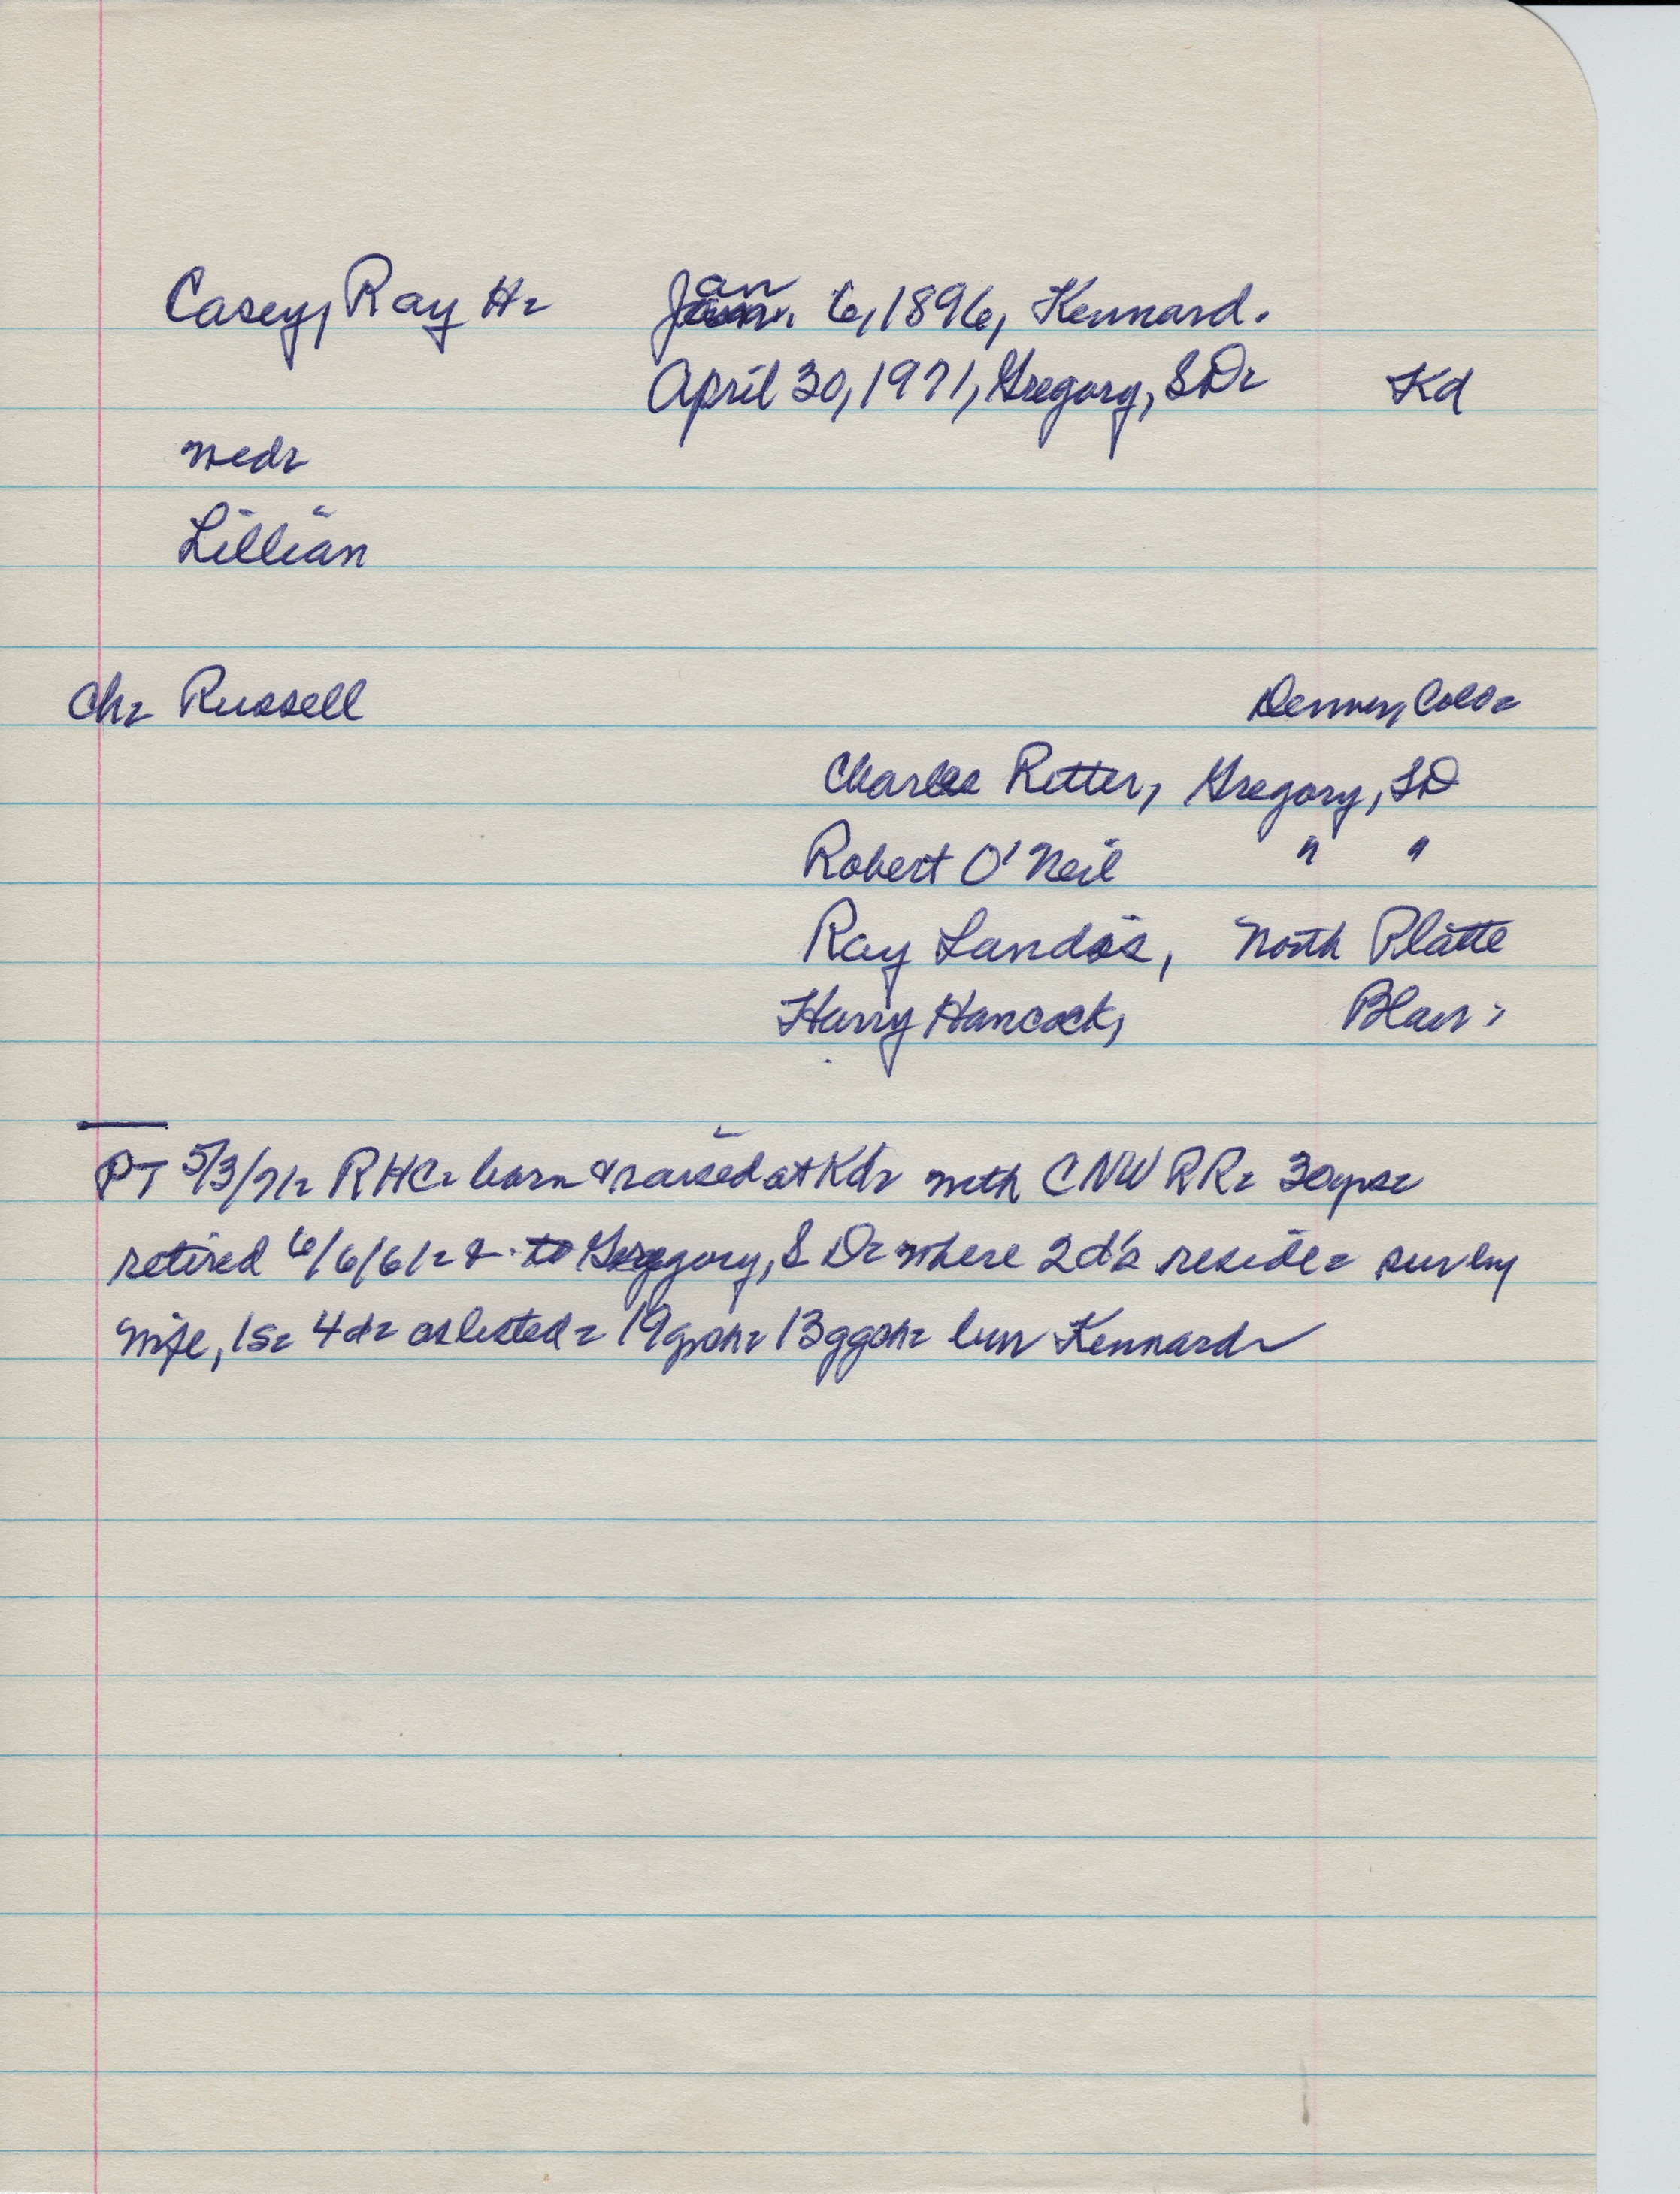 Casey, Ray H. Jan 6, 1896, Kennard.
April 30, 1971, Gregory, S.D. Kd
wed.
Lillian
Ch. Russell Denver, Colo.
Charles Ritter, Gregory, SD
Robert O'Neil " "
Ray Landis, North Platte
Harry Hancock, Blair.
PT 5/3/71. RHC. born & raised at Kd. with CNW RR. 30yrs.
retired 6/6/61. & to Gregory, S.D. where 2d's reside. surv by
wife, 1s. 4d. as listed. 19grch. 13ggch. bur Kennard.